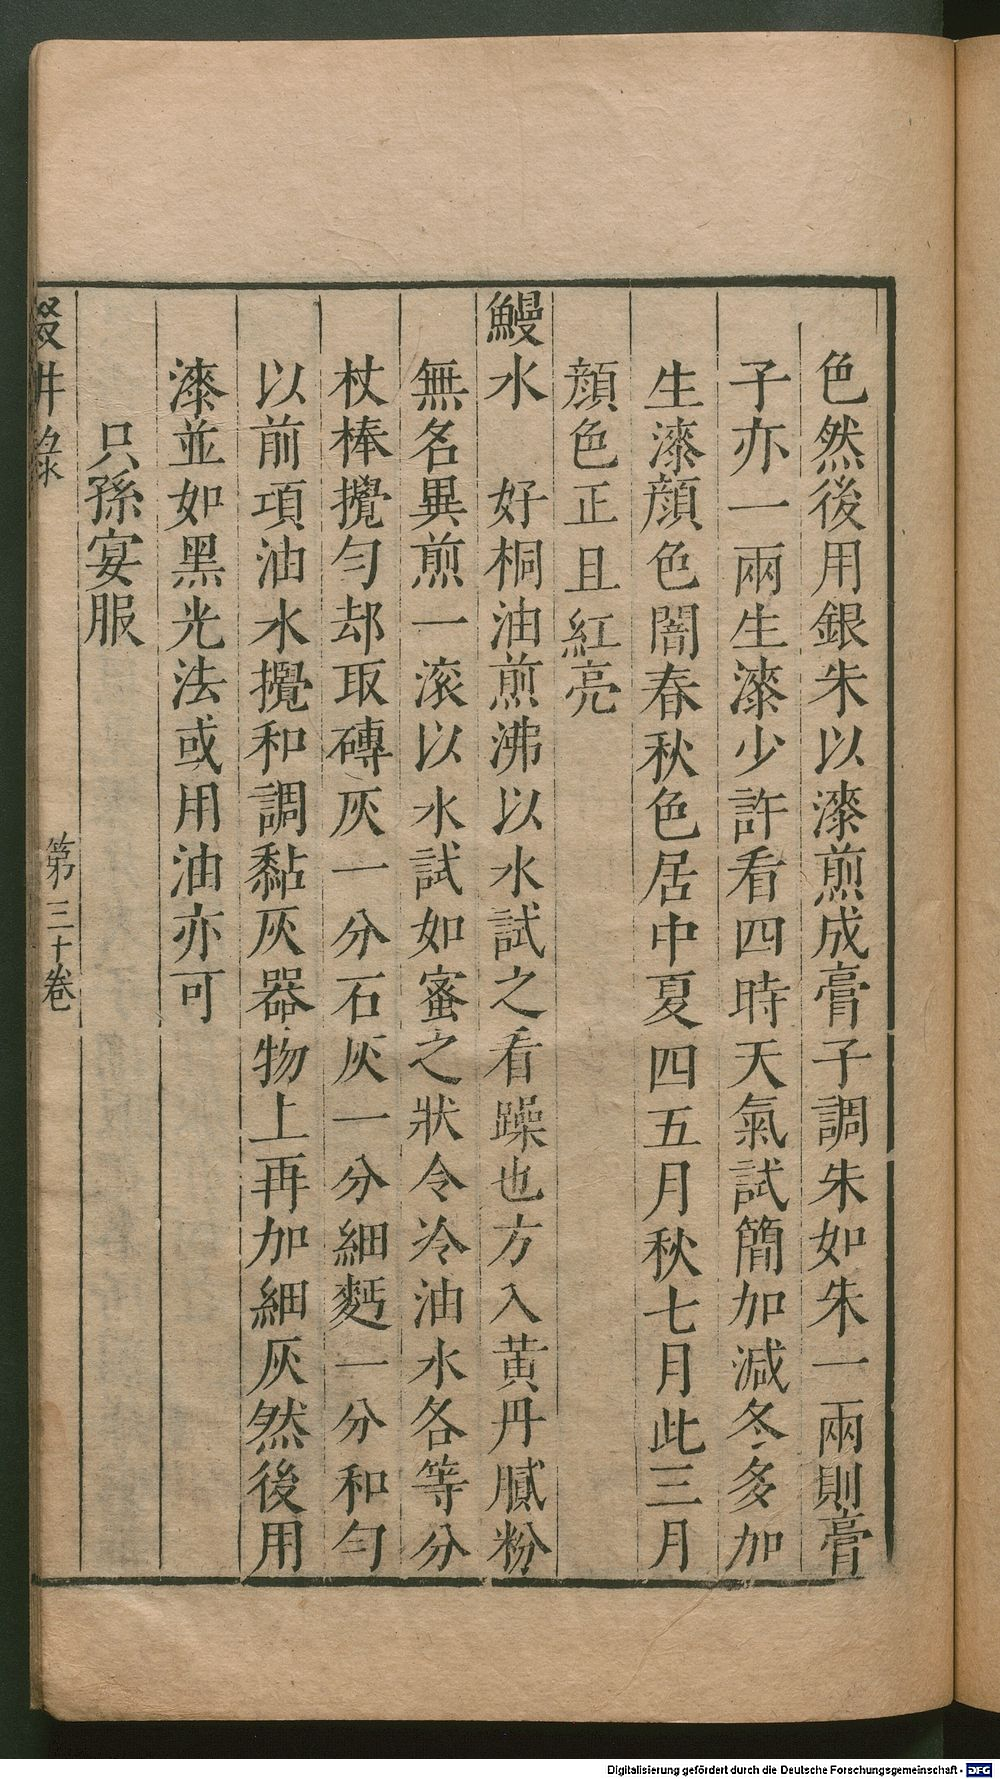 色然後用銀朱以漆煎成膏子調朱如朱一兩則膏
子亦一兩生漆少許看四時天氣試簡加減冬多加
生漆顔色闇春秋色居中夏四五月秋七月此三月
顔色正且紅亮
鰻水　好桐油煎沸以水試之看躁也方入黃丹膩粉
無名異煎一滚以水試如蜜之狀令冷油水各等分
杖棒攪勻却取磚灰一分石灰一分細麪一分和勻
以前項油水攪和調黏灰器物上再加細灰然後用
漆並如黑光法或用油亦可
只孫宴服
輟畊錄　第三十卷
Digitalisierung gefördert durch die Deutsche Forschungsgemeinschaft - DFG